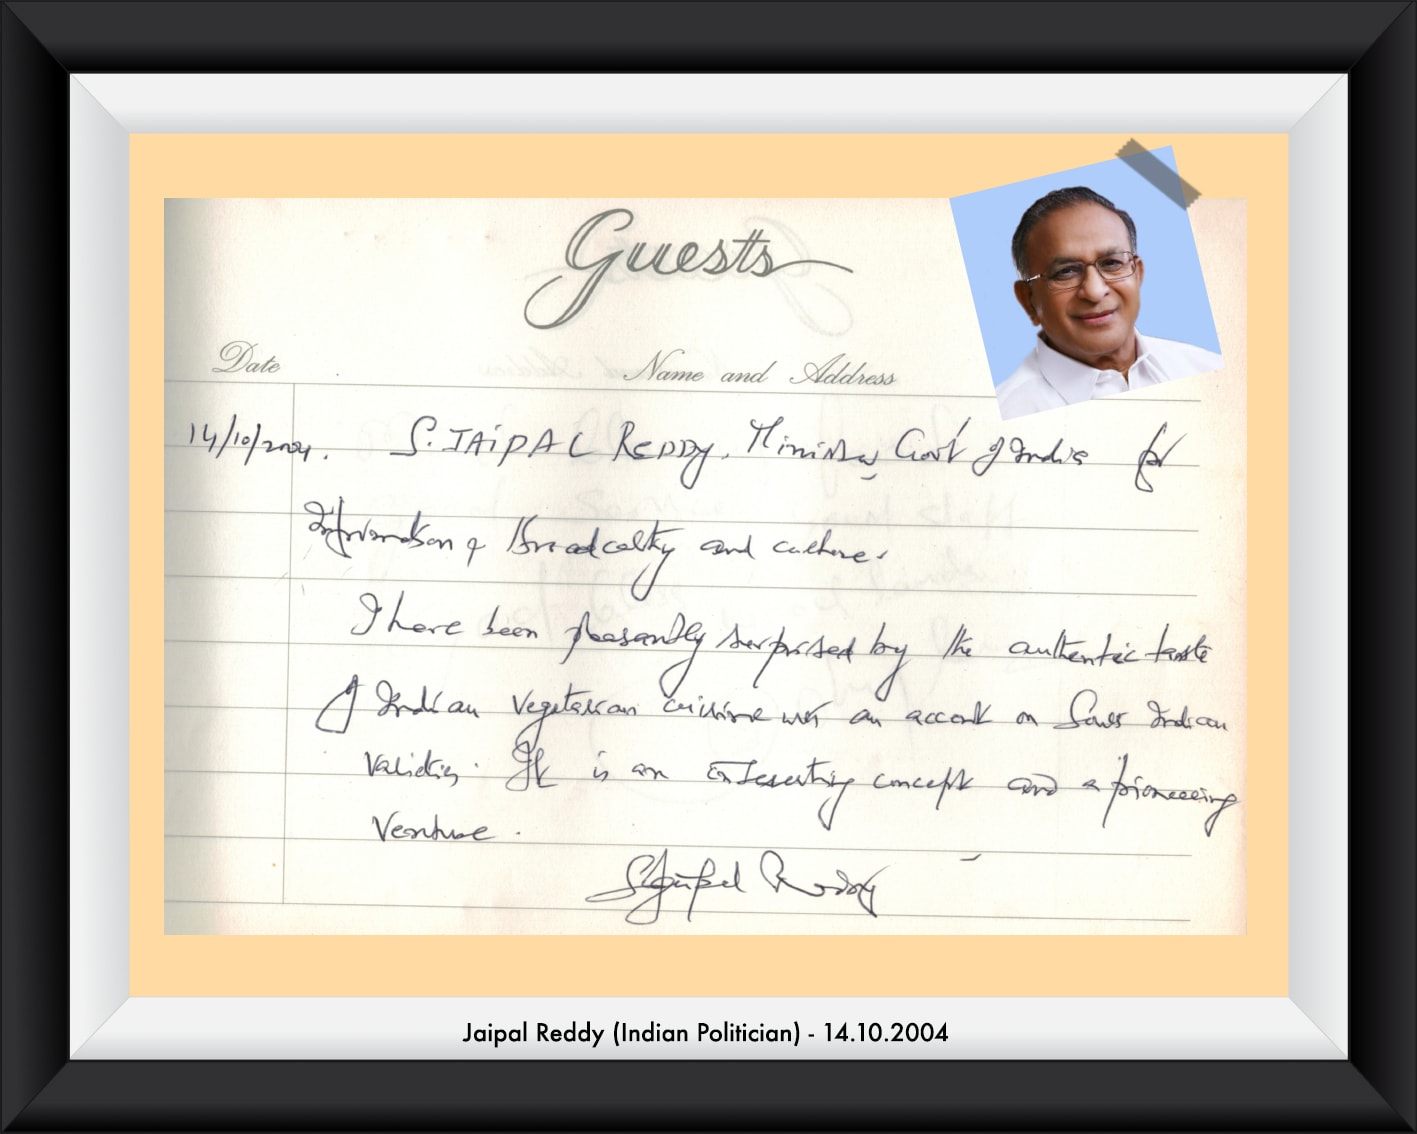 Guests
Date Name and Address
14/10/2004. S. JAIPAL REDDY. Minister Govt of India for
Information & Broadcasting and culture.
I have been pleasantly surprised by the authentic taste
of Indian vegetarian cuisine with an accent on South Indian
It is an interesting concept and a pioneering
Venture.
S Jaipal Reddy
Jaipal Reddy (Indian Politician) - 14.10.2004